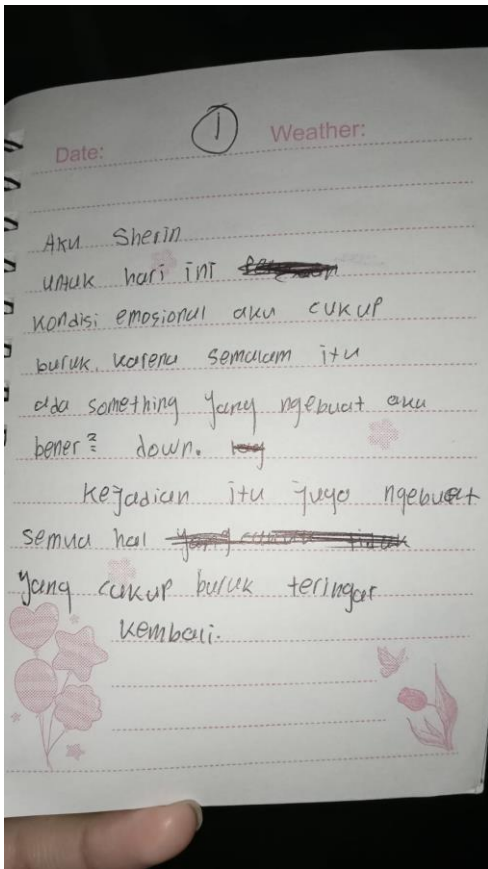 1
Date: Weather:
Aku Sherin
untuk hari ini
kondisi emosional aku cukup
buruk. karena semalam itu
ada something yang ngebuat aku
bener² down.
kejadian itu juga ngebuat
semua hal
yang cukup buruk teringat
kembali.